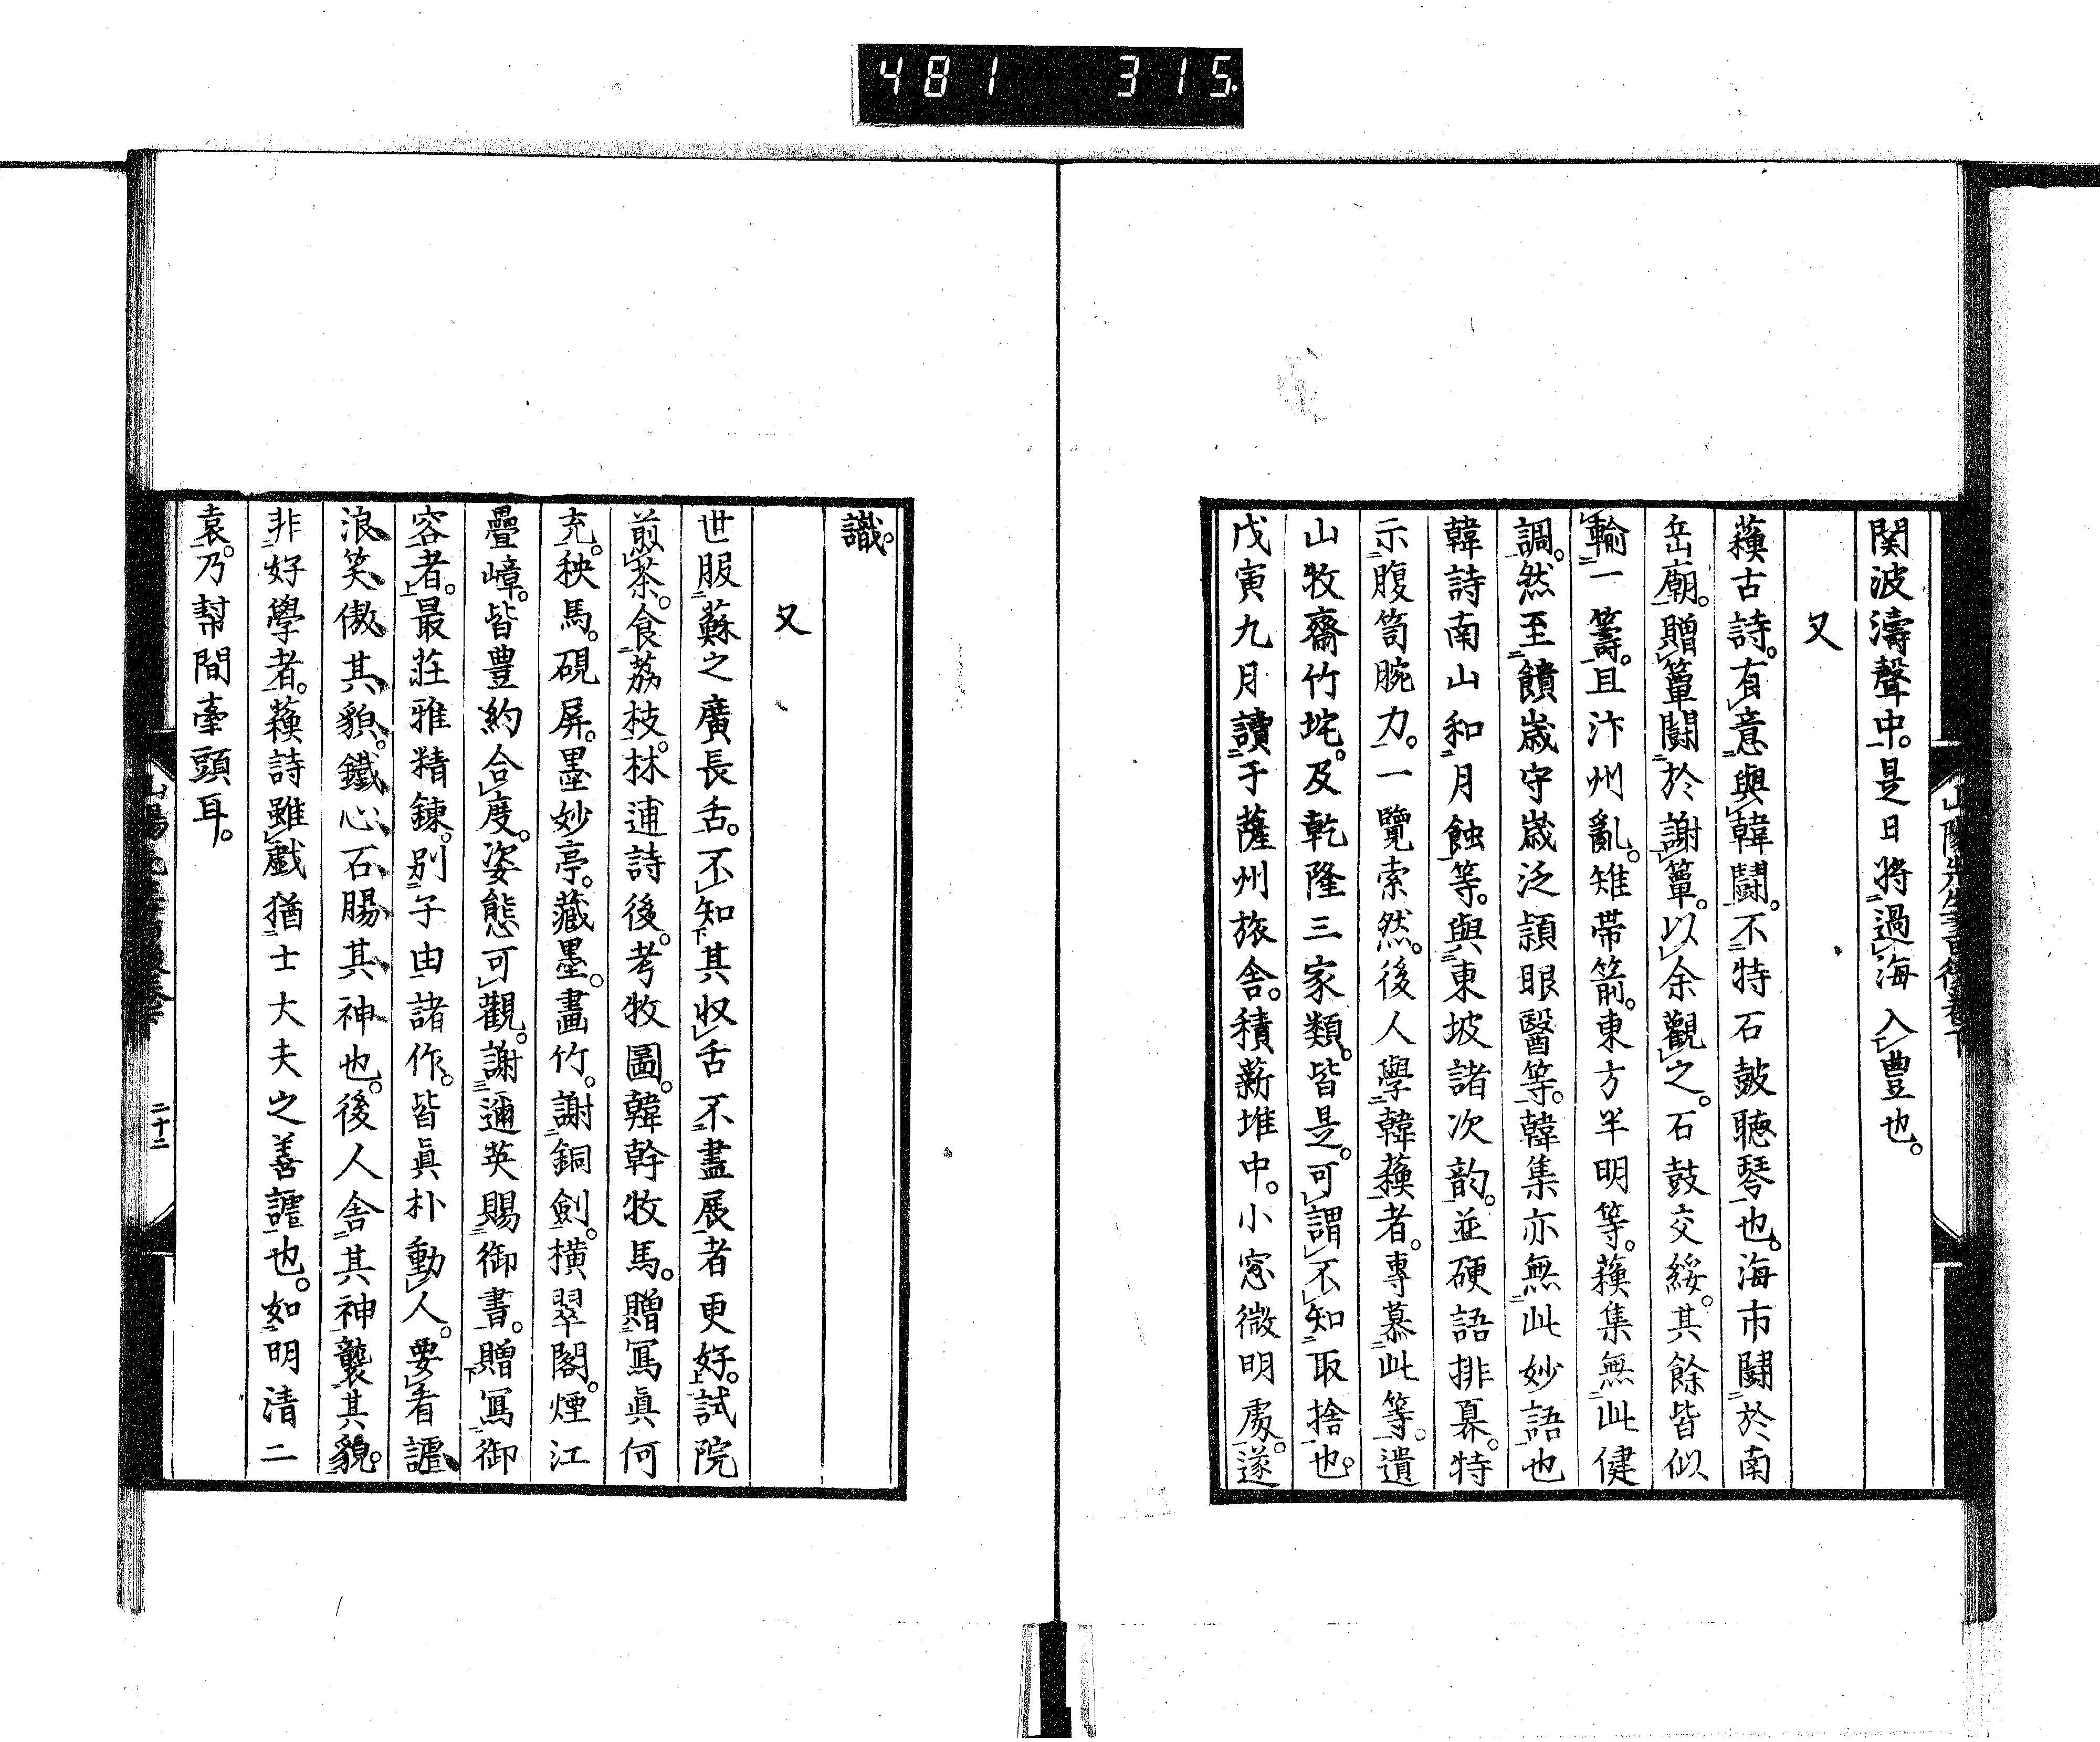 481 315
関波濤聲中。是日將過海入豊也。
又
蘓古詩。有意與韓鬪。不特石皷聴琴也。海市鬪於南
岳廟。贈簟鬪於謝簟。以余觀之。石鼓交綏。其餘皆似
輸一籌。且汴州亂。雉帯箭。東方半明等。蘓集無此健
調。然至饋歳守歳泛頴眼醫等。韓集亦無此妙語也
韓詩南山和月蝕等。與東坡諸次韵。並硬語排奡。特
示腹笥腕力。一覽索然。後人學韓蘓者。專慕此等。遺
山牧齋竹垞。及乾隆三家類。皆是。可謂不知取捨也。
戊寅九月讀于薩州旅舎。積薪堆中。小窓微明處。遂
山陽先生書後卷下
識。
又
世服蘇之廣長舌。不知其収舌不盡展者更好。試院
煎茶。食荔枝。林逋詩後。考牧圖。韓幹牧馬。贈冩眞何
充。秧馬。硯屏。墨妙亭。藏墨。畫竹。謝銅劍。横翠閣。煙江
疊嶂。皆豊約合度。姿態可觀。謝邇英賜御書。贈冩御
容者。最莊雅精錬。别子由諸作。皆眞朴動人。要看謔
浪笑傲其貌。鐵心石腸其神也。後人舎其神襲其貌。
非好學者。蘓詩雖戯猶士大夫之善謔也。如明清二
袁。乃幇間牽頭耳。
二十二